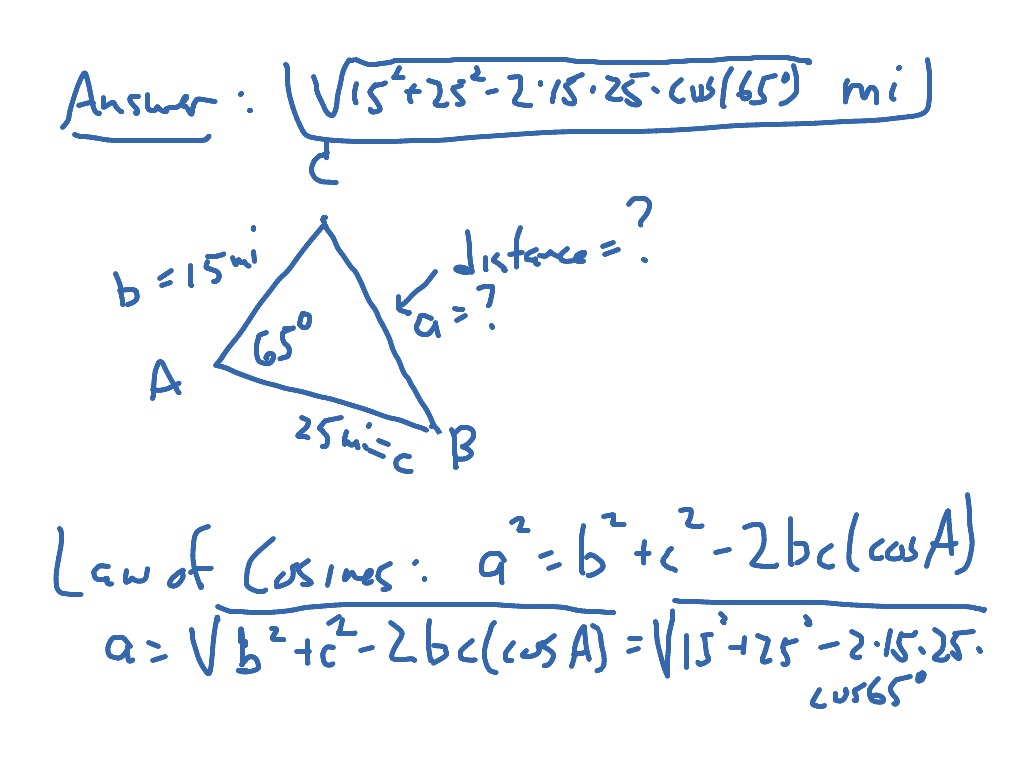 Answer: √15²+25²-2·15·25·cos(65°) mi
C
b=15mi
distance=?
a=?
65°
A
25mi=c
B
Law of Cosines: a²=b²+c²-2bc(cosA)
a=√b²+c²-2bc(cosA)=√15²+25²-2·15·25·
cos65°